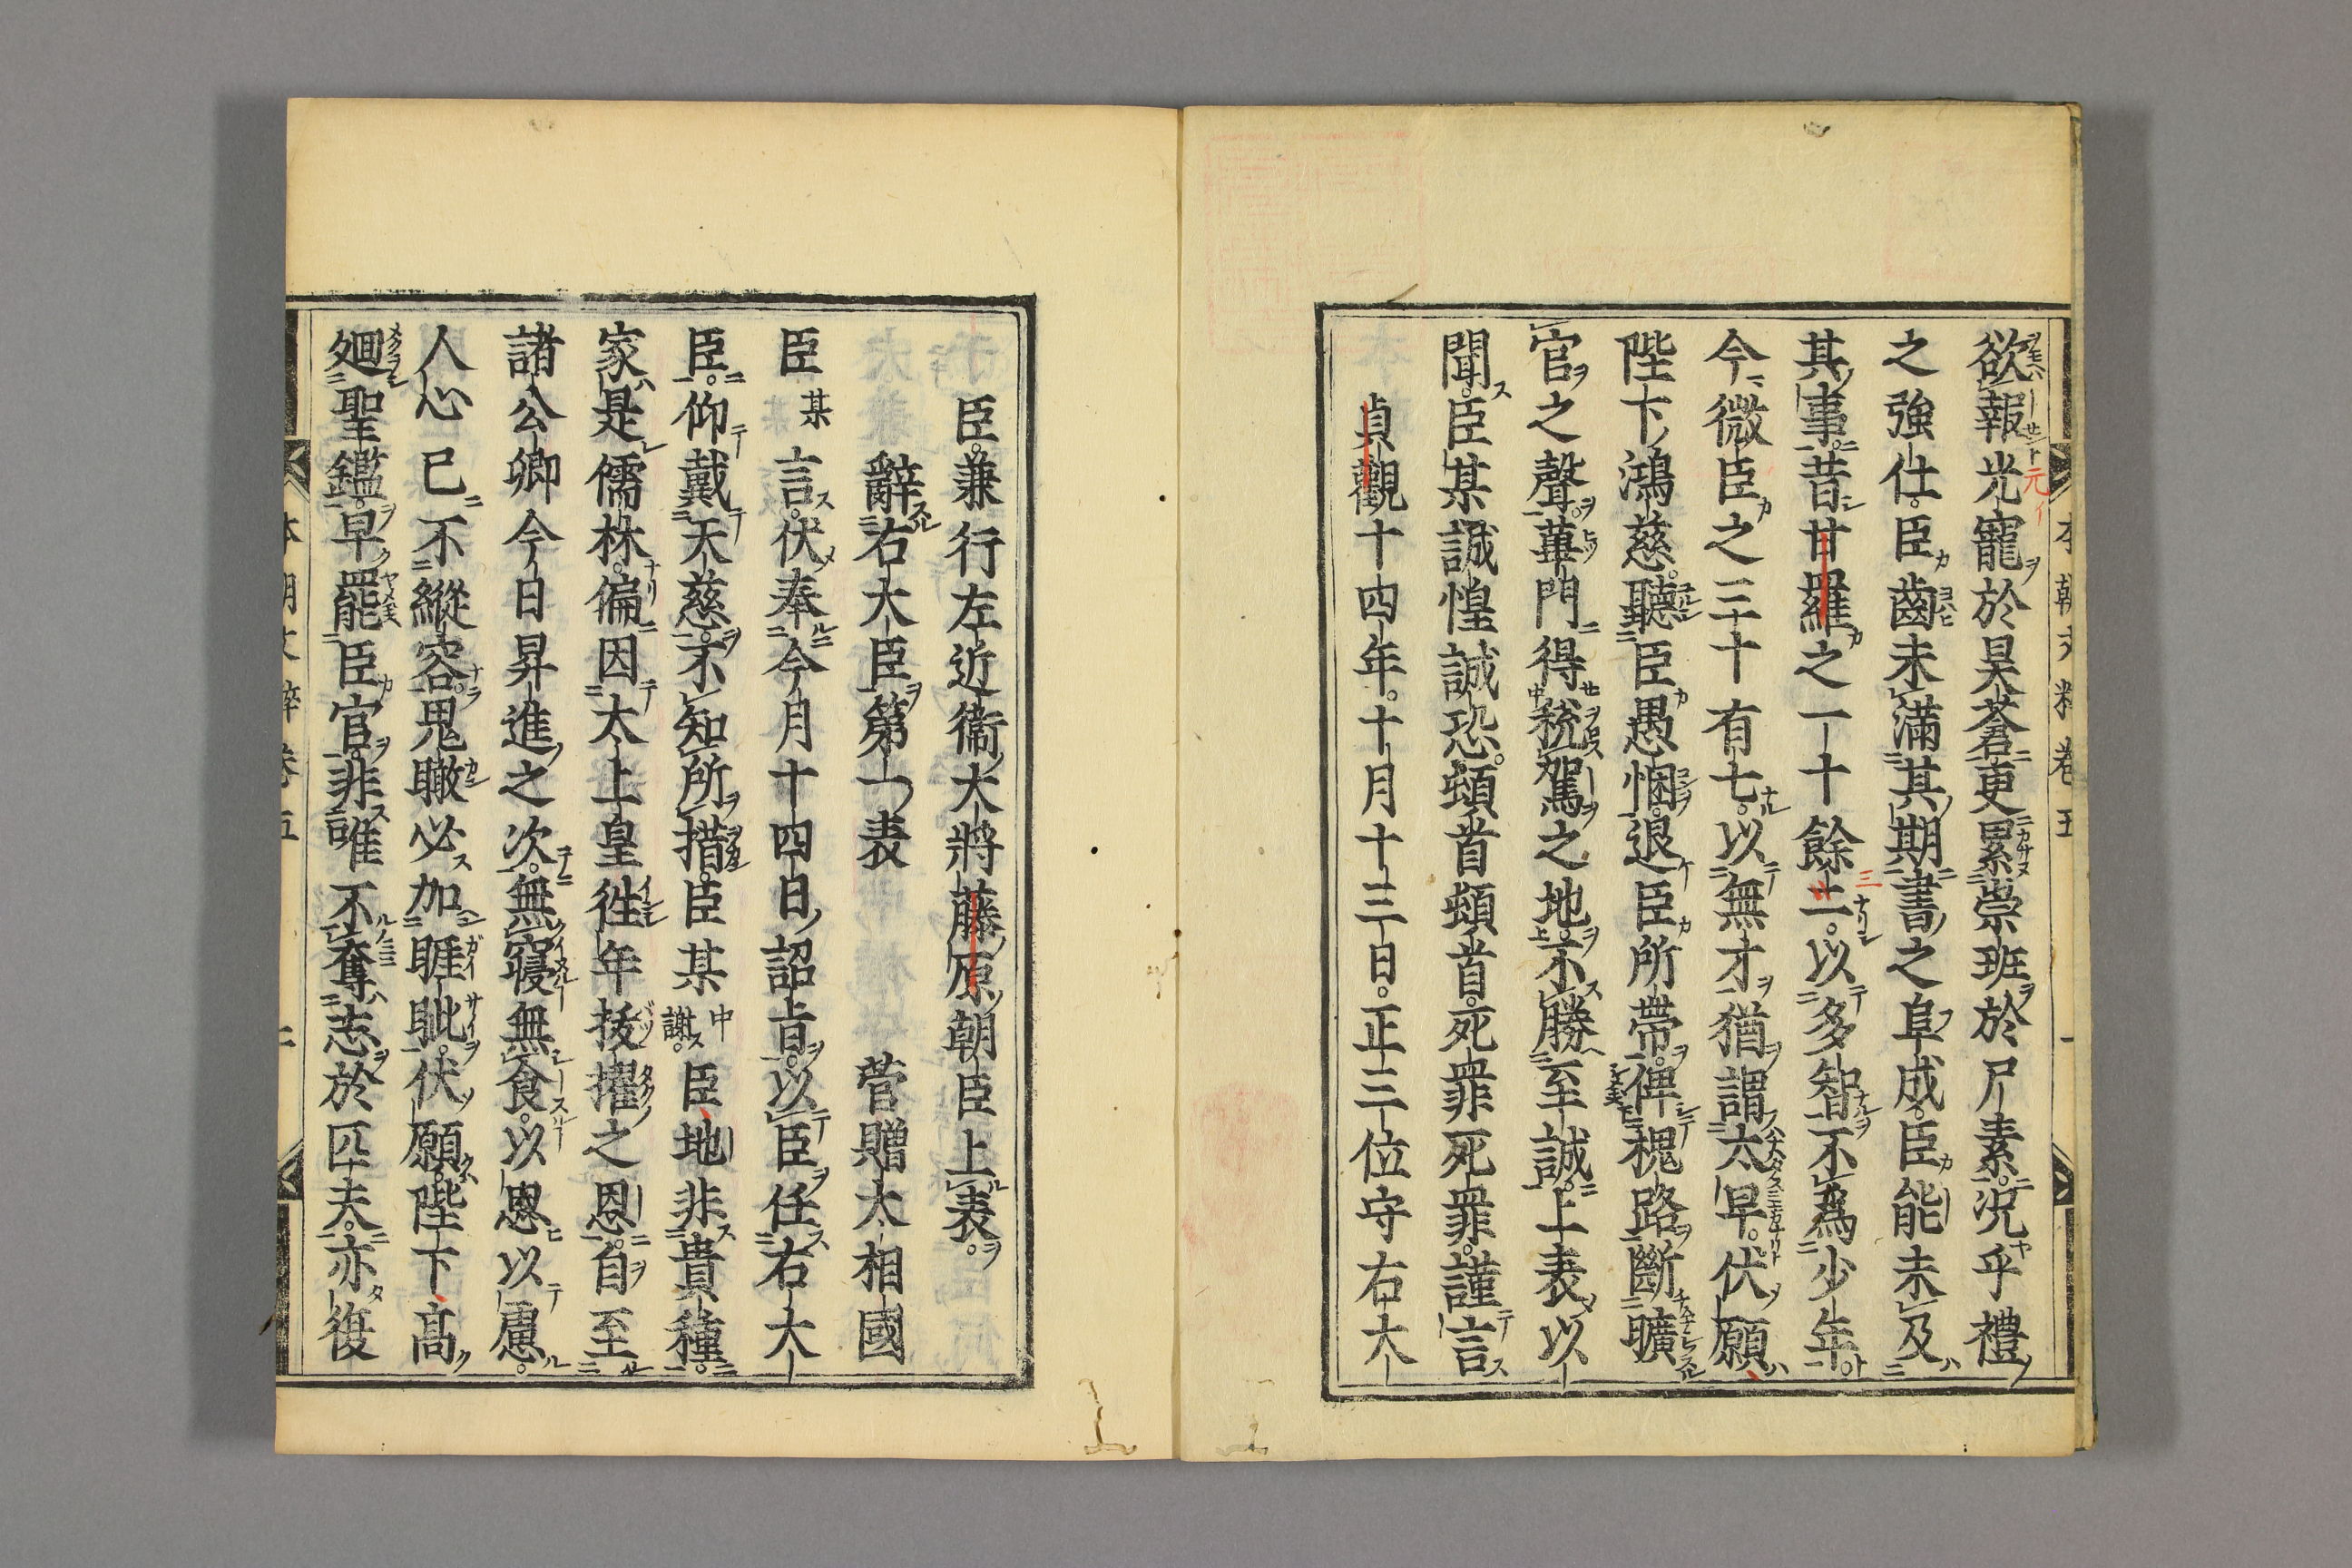 欲報光寵於昊蒼更累崇班於尸素況乎禮
之強仕臣齒未滿其期書之阜成臣能未及
其事昔甘羅之一十餘二以多智不爲少年
今微臣之三十有七以無才猶謂太早伏願
陛下鴻慈聽臣愚悃退臣所帶俾槐路斷曠
官之聲蓽門得稅駕之地不勝至誠上表以
聞臣某誠惶誠恐頓首頓首死罪死罪謹言
貞觀十四年十月十三日正三位守右大
臣兼行左近衞大將藤原朝臣上表
辭右大臣第一表 菅贈太相國
臣某言伏奉今月十四日詔旨以臣任右大
臣仰戴天慈不知所措臣某中謝臣地非貴種
家是儒林偏因太上皇往年拔擢之恩自至
諸公卿今日昇進之次無寢無食以思以慮
人心已不縱容鬼瞰必加睚眦伏願陛下高
廻聖鑑早罷臣官非唯不奪志於匹夫亦復
本朝文粹卷五 二